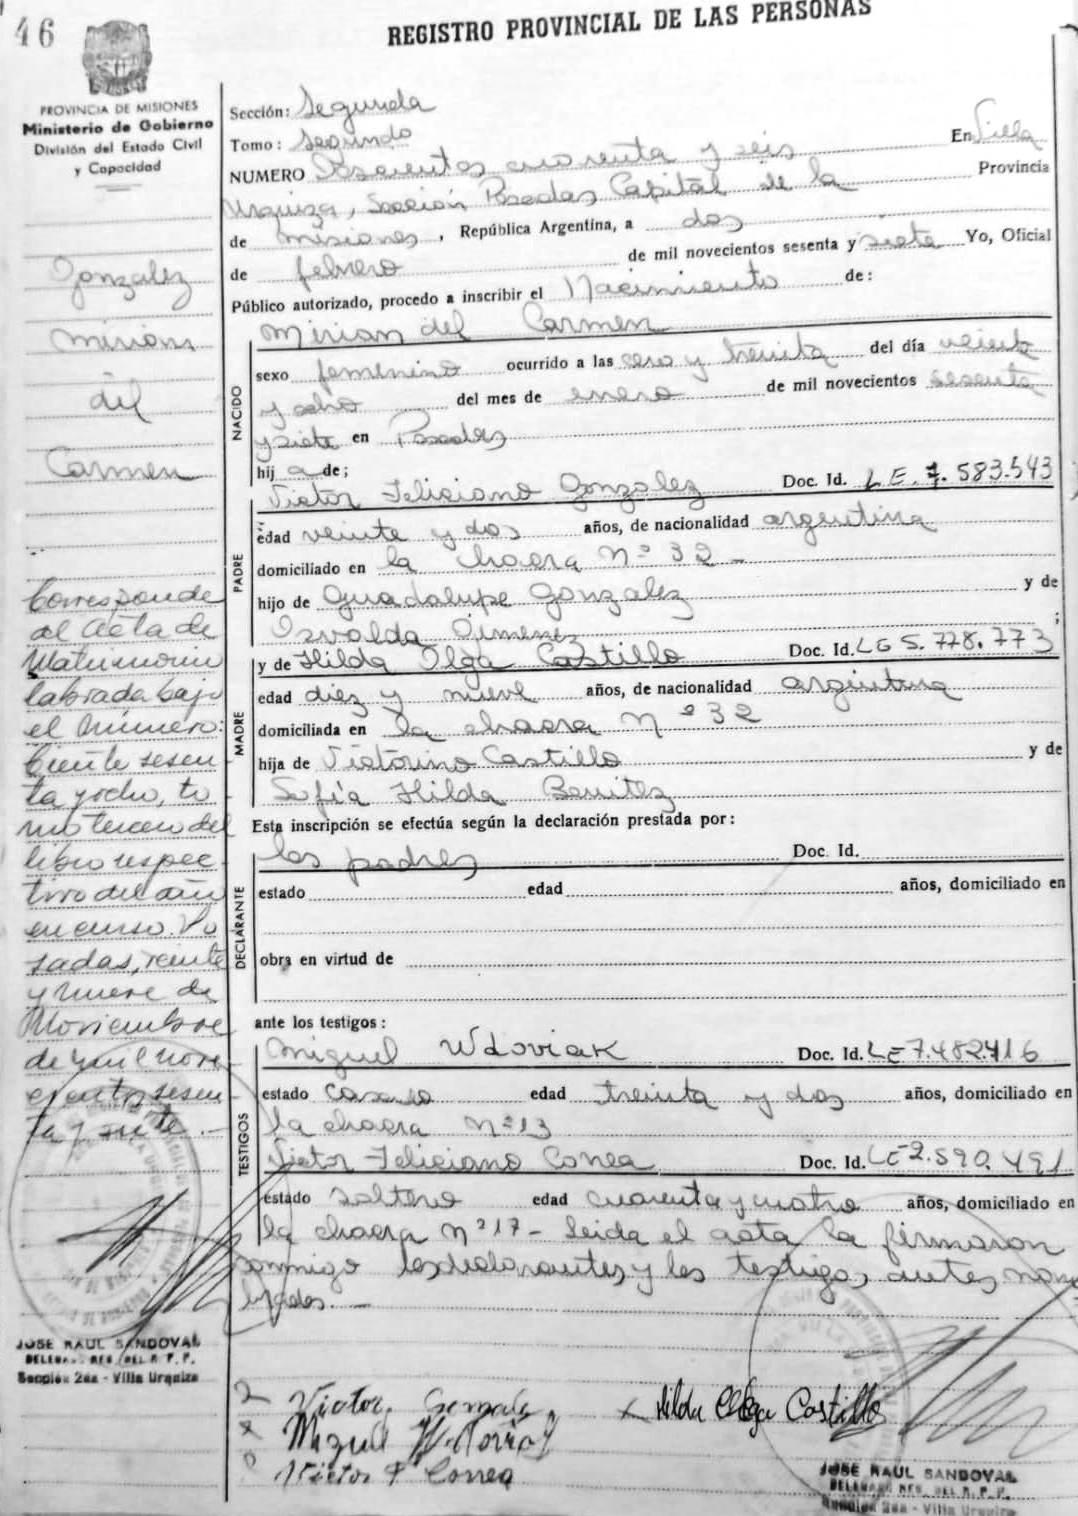 46
REGISTRO PROVINCIAL DE LAS PERSONAS
PROVINCIA DE MISIONES
Ministerio de Gobierno
División del Estado Civil
y Capacidad
Gonzalez
Mirian
del
Carmen
Corresponde
al Acta de
Matrimonio
labrada bajo
el número:
Ciento sesen
ta y ocho, to
mo tercero del
libro respec
tivo del año
en curso. Po
sadas, veinte
y nueve de
Noviembre
de mil nove
cientos sesen
ta y siete.-
JOSE RAUL SANDOVAL
Sección 2da - Villa Urquiza
Sección: Segunda
Tomo: Segundo En Villa
NUMERO Doscientos cuarenta y seis
Urquiza, Sección Posadas Capital de la Provincia
de Misiones, República Argentina, a dos
de febrero de mil novecientos sesenta y siete Yo, Oficial
Público autorizado, procedo a inscribir el Nacimiento de:
NACIDO
Mirian del Carmen
sexo femenino ocurrido a las cero y treinta del día veinte
y ocho del mes de enero de mil novecientos sesenta
y siete en Posadas
hij a de;
PADRE
Victor Feliciano Gonzalez Doc. Id. LE. 7.583.543
edad veinte y dos años, de nacionalidad argentina
domiciliado en la chacra Nº 32 -
hijo de Guadalupe Gonzalez y de
Osvalda Gimenez ;
MADRE
y de Hilda Olga Castillo Doc. Id. LC 5.778.773
edad diez y nueve años, de nacionalidad argentina
domiciliada en la chacra Nº 32
hija de Victorino Castillo y de
Sofía Hilda Benitez
Esta inscripción se efectúa según la declaración prestada por:
DECLARANTE
los padres Doc. Id.
estado edad años, domiciliado en
obra en virtud de
ante los testigos:
TESTIGOS
Miguel Wdoviak Doc. Id. LE 7.482.416
estado casado edad treinta y dos años, domiciliado en
la chacra Nº 13
Victor Feliciano Correa Doc. Id. LE 2.590.491
estado soltero edad cuarenta y cuatro años, domiciliado en
la chacra Nº 17 - Leida el acta la firmaron
conmigo los declarantes y los testigos antes nom
brados. -
Victor Gonzalez x Hilda Olga Castillo
Miguel Wdoviak
Victor F Correa
JOSE RAUL SANDOVAL
Sección 2da - Villa Urquiza